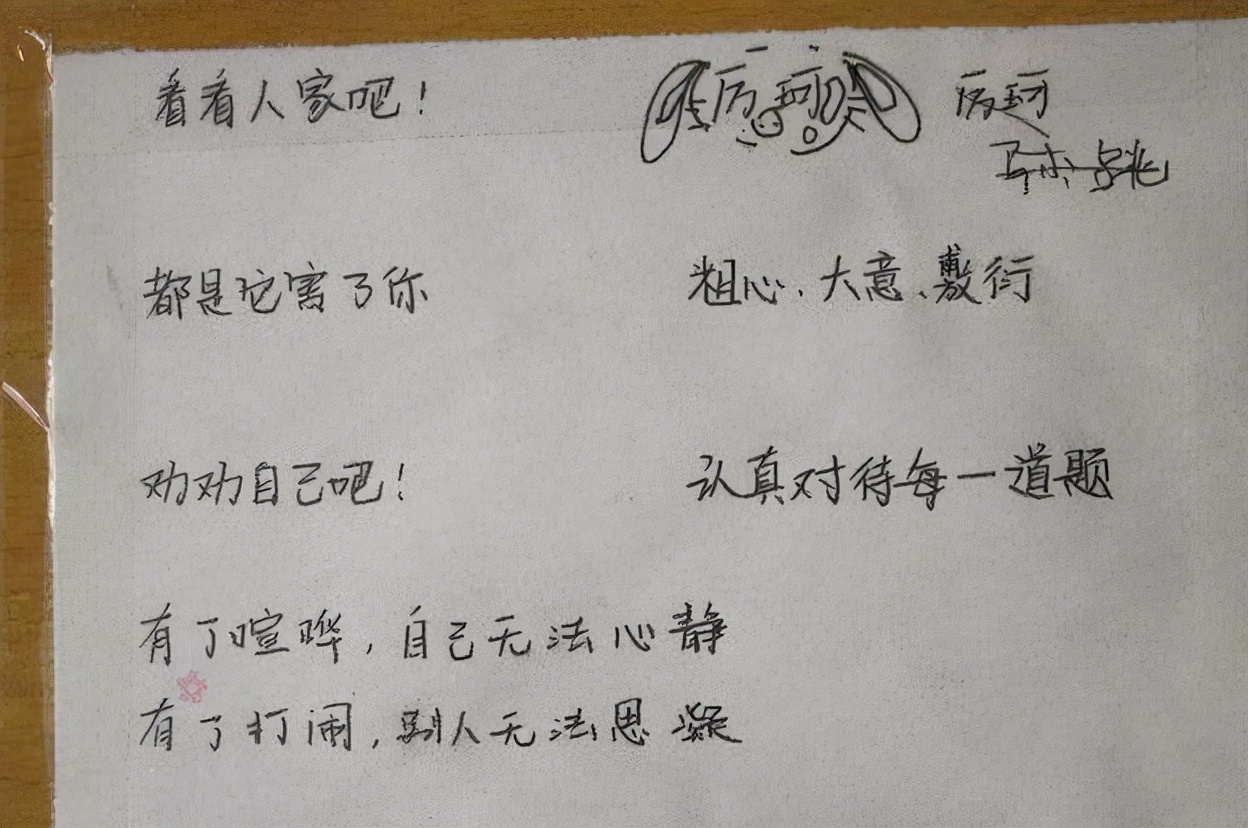 看看人家吧！
都是它害了你
粗心、大意、敷衍
劝劝自己吧！
认真对待每一道题
有了喧哗，自己无法心静
有了打闹，别人无法思凝